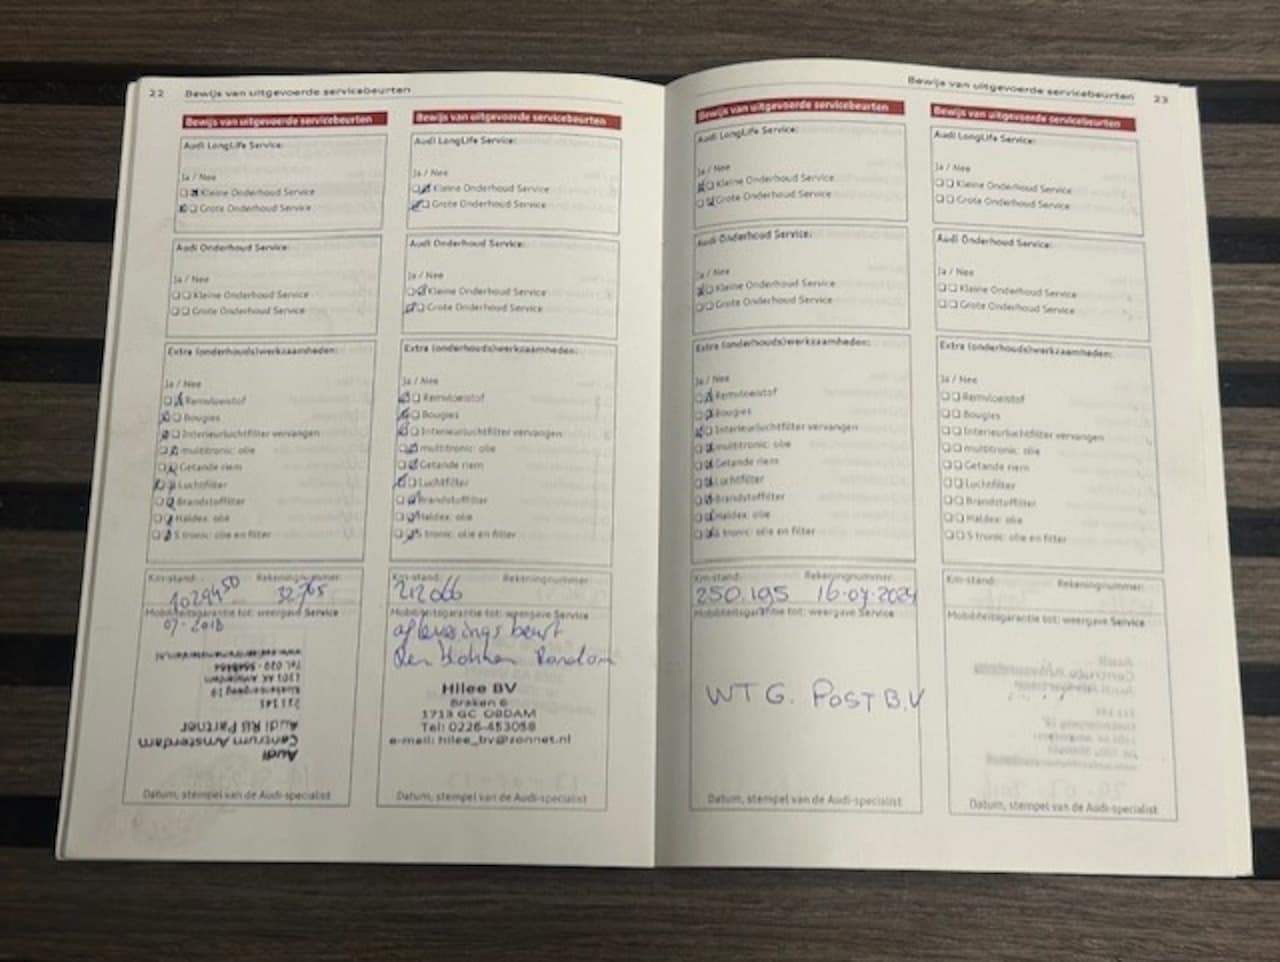 22 Bewijs van uitgevoerde servicebeurten
Bewijs van uitgevoerde servicebeurten
Audi LongLife Service:
Ja / Nee
Kleine Onderhoud Service
Grote Onderhoud Service
Audi Onderhoud Service:
Ja / Nee
Kleine Onderhoud Service
Grote Onderhoud Service
Extra (onderhouds)werkzaamheden:
Ja / Nee
Remvloeistof
Bougies
Interieurluchtfilter vervangen
multitronic: olie
Getande riem
Luchtfilter
Brandstoffilter
Haldex: olie
S tronic: olie en filter
Km-stand: Rekeningnummer:
32765
Mobiliteitsgarantie tot: weergave Service
07-2018
Audi
Centrum Amsterdam
Audi R8 Partner
Klokkenbergweg 19
1101 AK Amsterdam
Datum, stempel van de Audi-specialist
Bewijs van uitgevoerde servicebeurten
Audi LongLife Service:
Ja / Nee
Kleine Onderhoud Service
Grote Onderhoud Service
Audi Onderhoud Service:
Ja / Nee
Kleine Onderhoud Service
Grote Onderhoud Service
Extra (onderhouds)werkzaamheden:
Ja / Nee
Remvloeistof
Bougies
Interieurluchtfilter vervangen
multitronic: olie
Getande riem
Luchtfilter
Brandstoffilter
Haldex: olie
S tronic: olie en filter
Km-stand: Rekeningnummer:
212066
Mobiliteitsgarantie tot: weergave Service
afleverings beurt
Rem blokken Rondom
Hilee BV
Braken 6
1713 GC OBDAM
Tel: 0226-453058
e-mail: hilee_bv@zonnet.nl
Datum, stempel van de Audi-specialist
Bewijs van uitgevoerde servicebeurten 23
Bewijs van uitgevoerde servicebeurten
Audi LongLife Service:
Ja / Nee
Kleine Onderhoud Service
Grote Onderhoud Service
Audi Onderhoud Service:
Ja / Nee
Kleine Onderhoud Service
Grote Onderhoud Service
Extra (onderhouds)werkzaamheden:
Ja / Nee
Remvloeistof
Bougies
Interieurluchtfilter vervangen
multitronic: olie
Getande riem
Luchtfilter
Brandstoffilter
Haldex: olie
S tronic: olie en filter
Km-stand: Rekeningnummer:
250.195 16-07-2024
Mobiliteitsgarantie tot: weergave Service
WTG. POST B.V
Datum, stempel van de Audi-specialist
Bewijs van uitgevoerde servicebeurten
Audi LongLife Service:
Ja / Nee
Kleine Onderhoud Service
Grote Onderhoud Service
Audi Onderhoud Service:
Ja / Nee
Kleine Onderhoud Service
Grote Onderhoud Service
Extra (onderhouds)werkzaamheden:
Ja / Nee
Remvloeistof
Bougies
Interieurluchtfilter vervangen
multitronic: olie
Getande riem
Luchtfilter
Brandstoffilter
Haldex: olie
S tronic: olie en filter
Km-stand: Rekeningnummer:
Mobiliteitsgarantie tot: weergave Service
Datum, stempel van de Audi-specialist